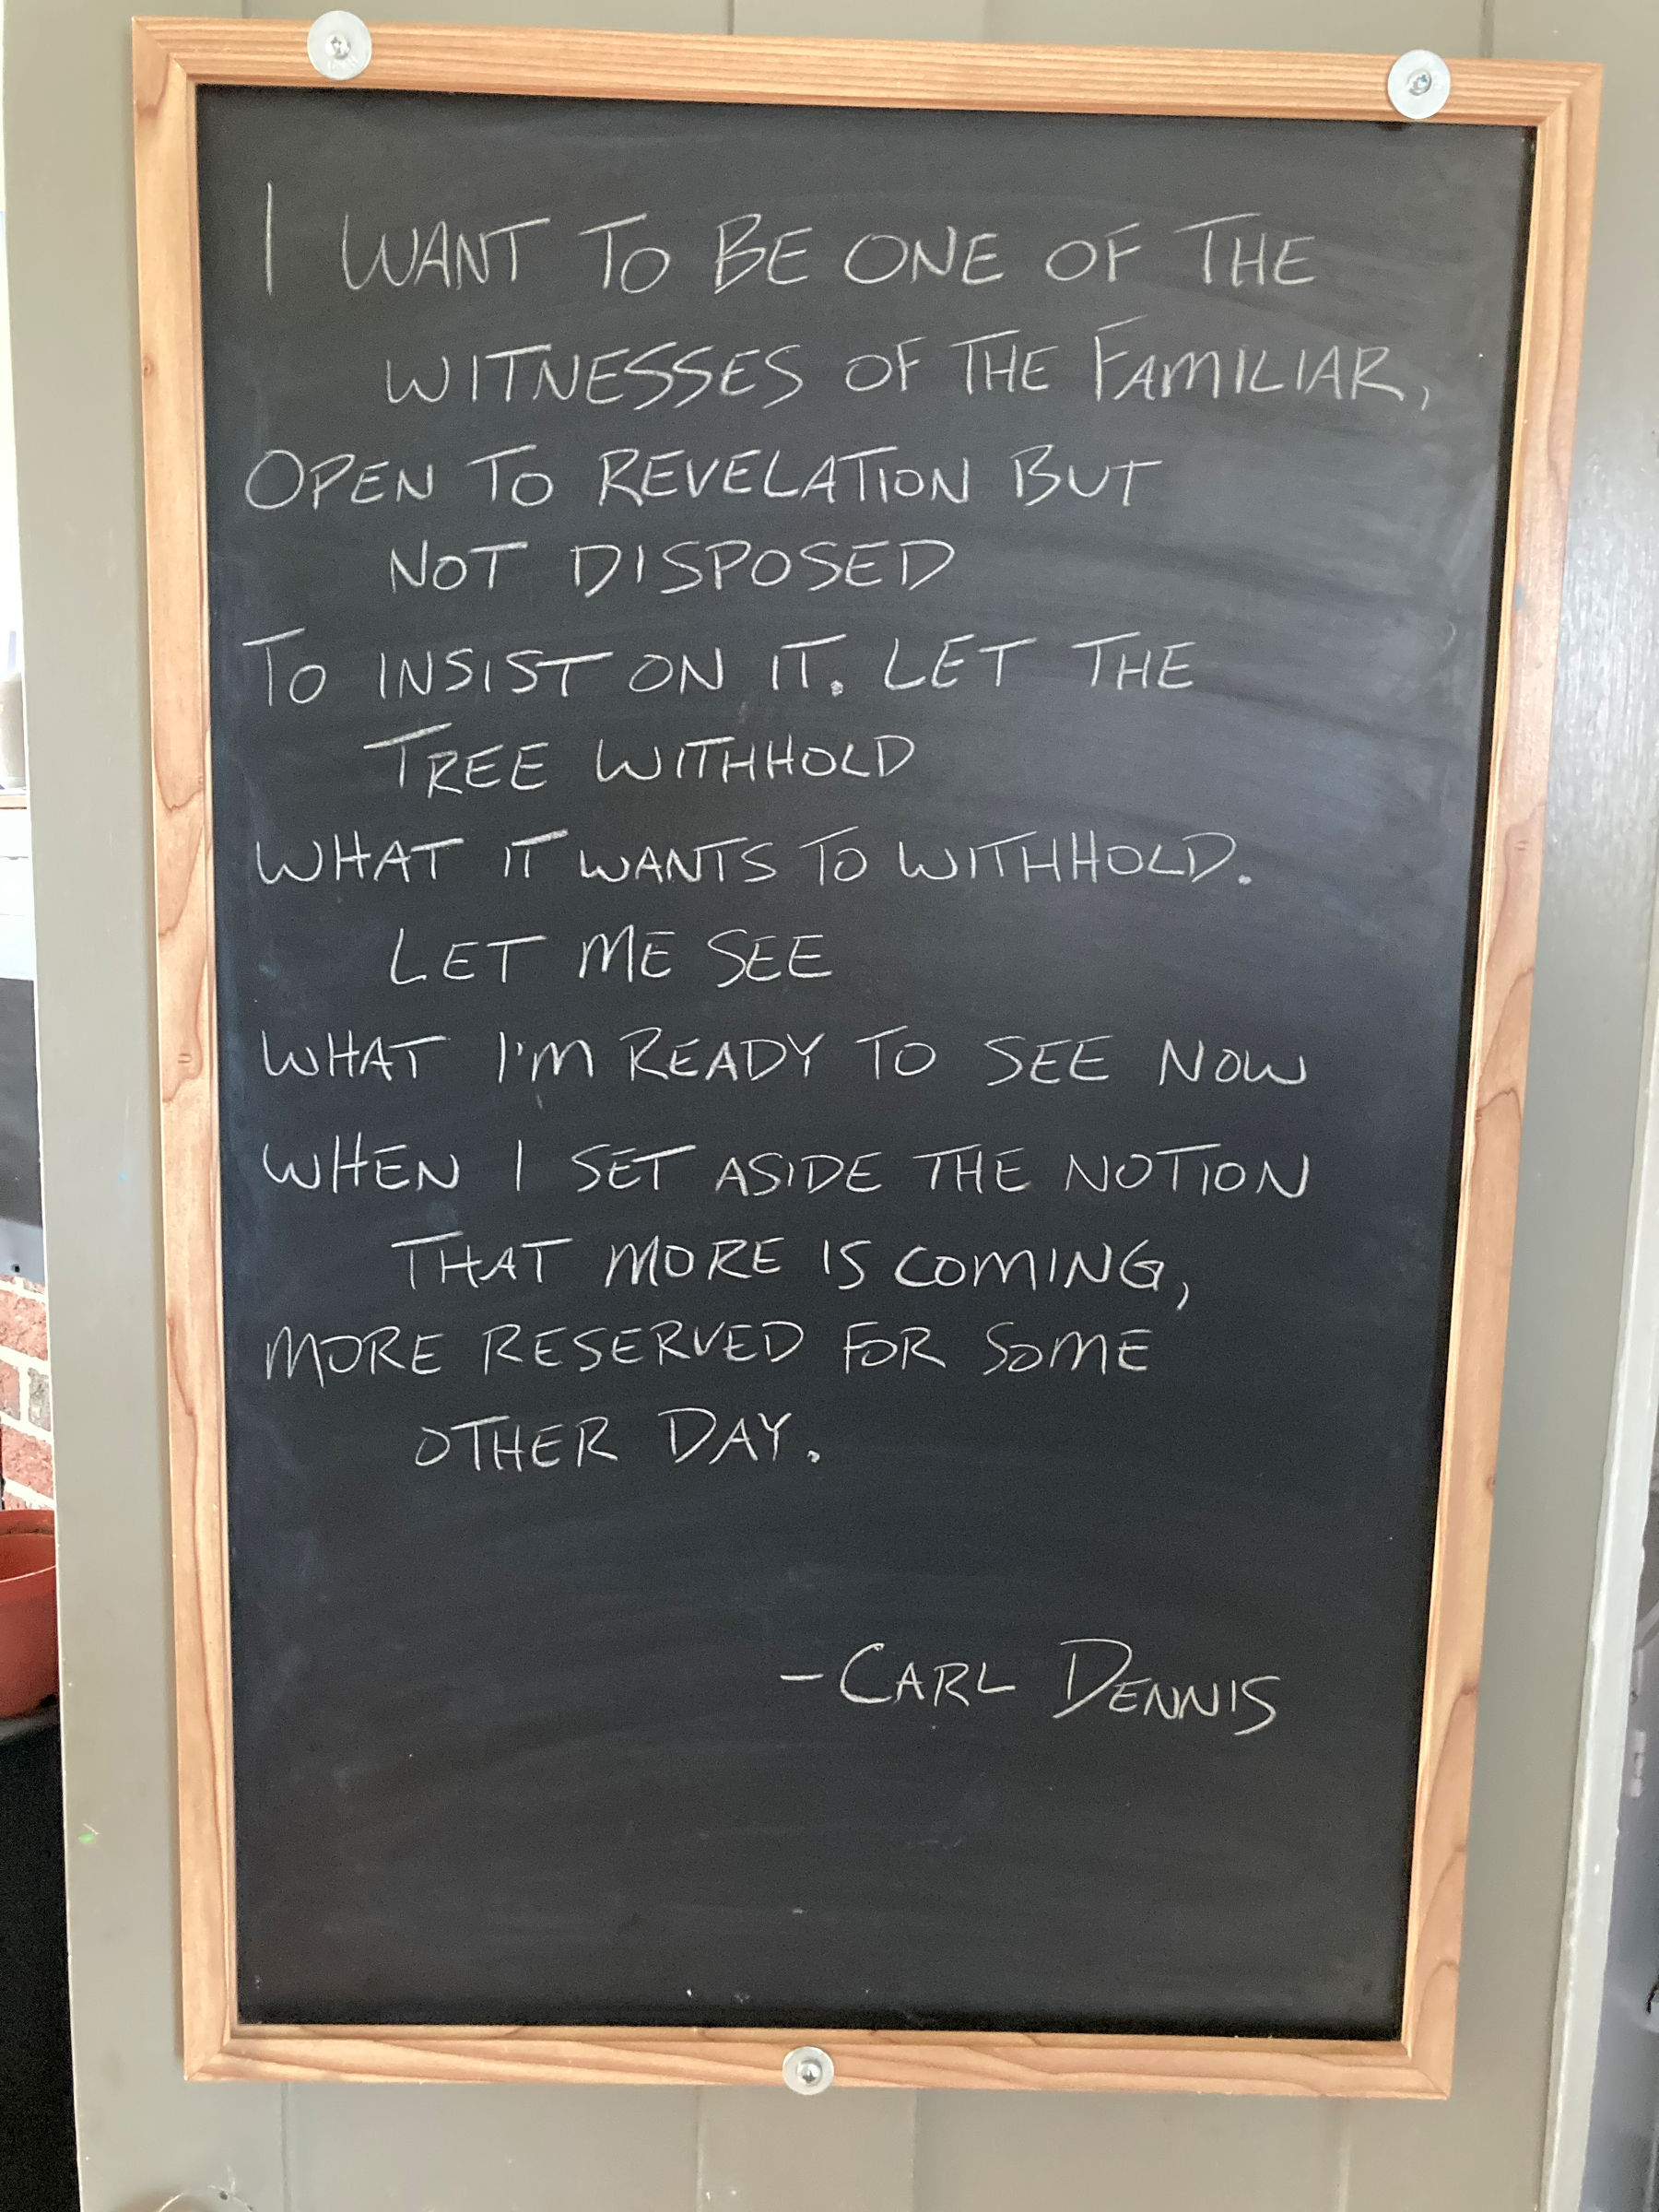 I WANT TO BE ONE OF THE
WITNESSES OF THE FAMILIAR,
OPEN TO REVELATION BUT
NOT DISPOSED
TO INSIST ON IT. LET THE
TREE WITHHOLD
WHAT IT WANTS TO WITHHOLD.
LET ME SEE
WHAT I'M READY TO SEE NOW
WHEN I SET ASIDE THE NOTION
THAT MORE IS COMING,
MORE RESERVED FOR SOME
OTHER DAY.
- CARL DENNIS